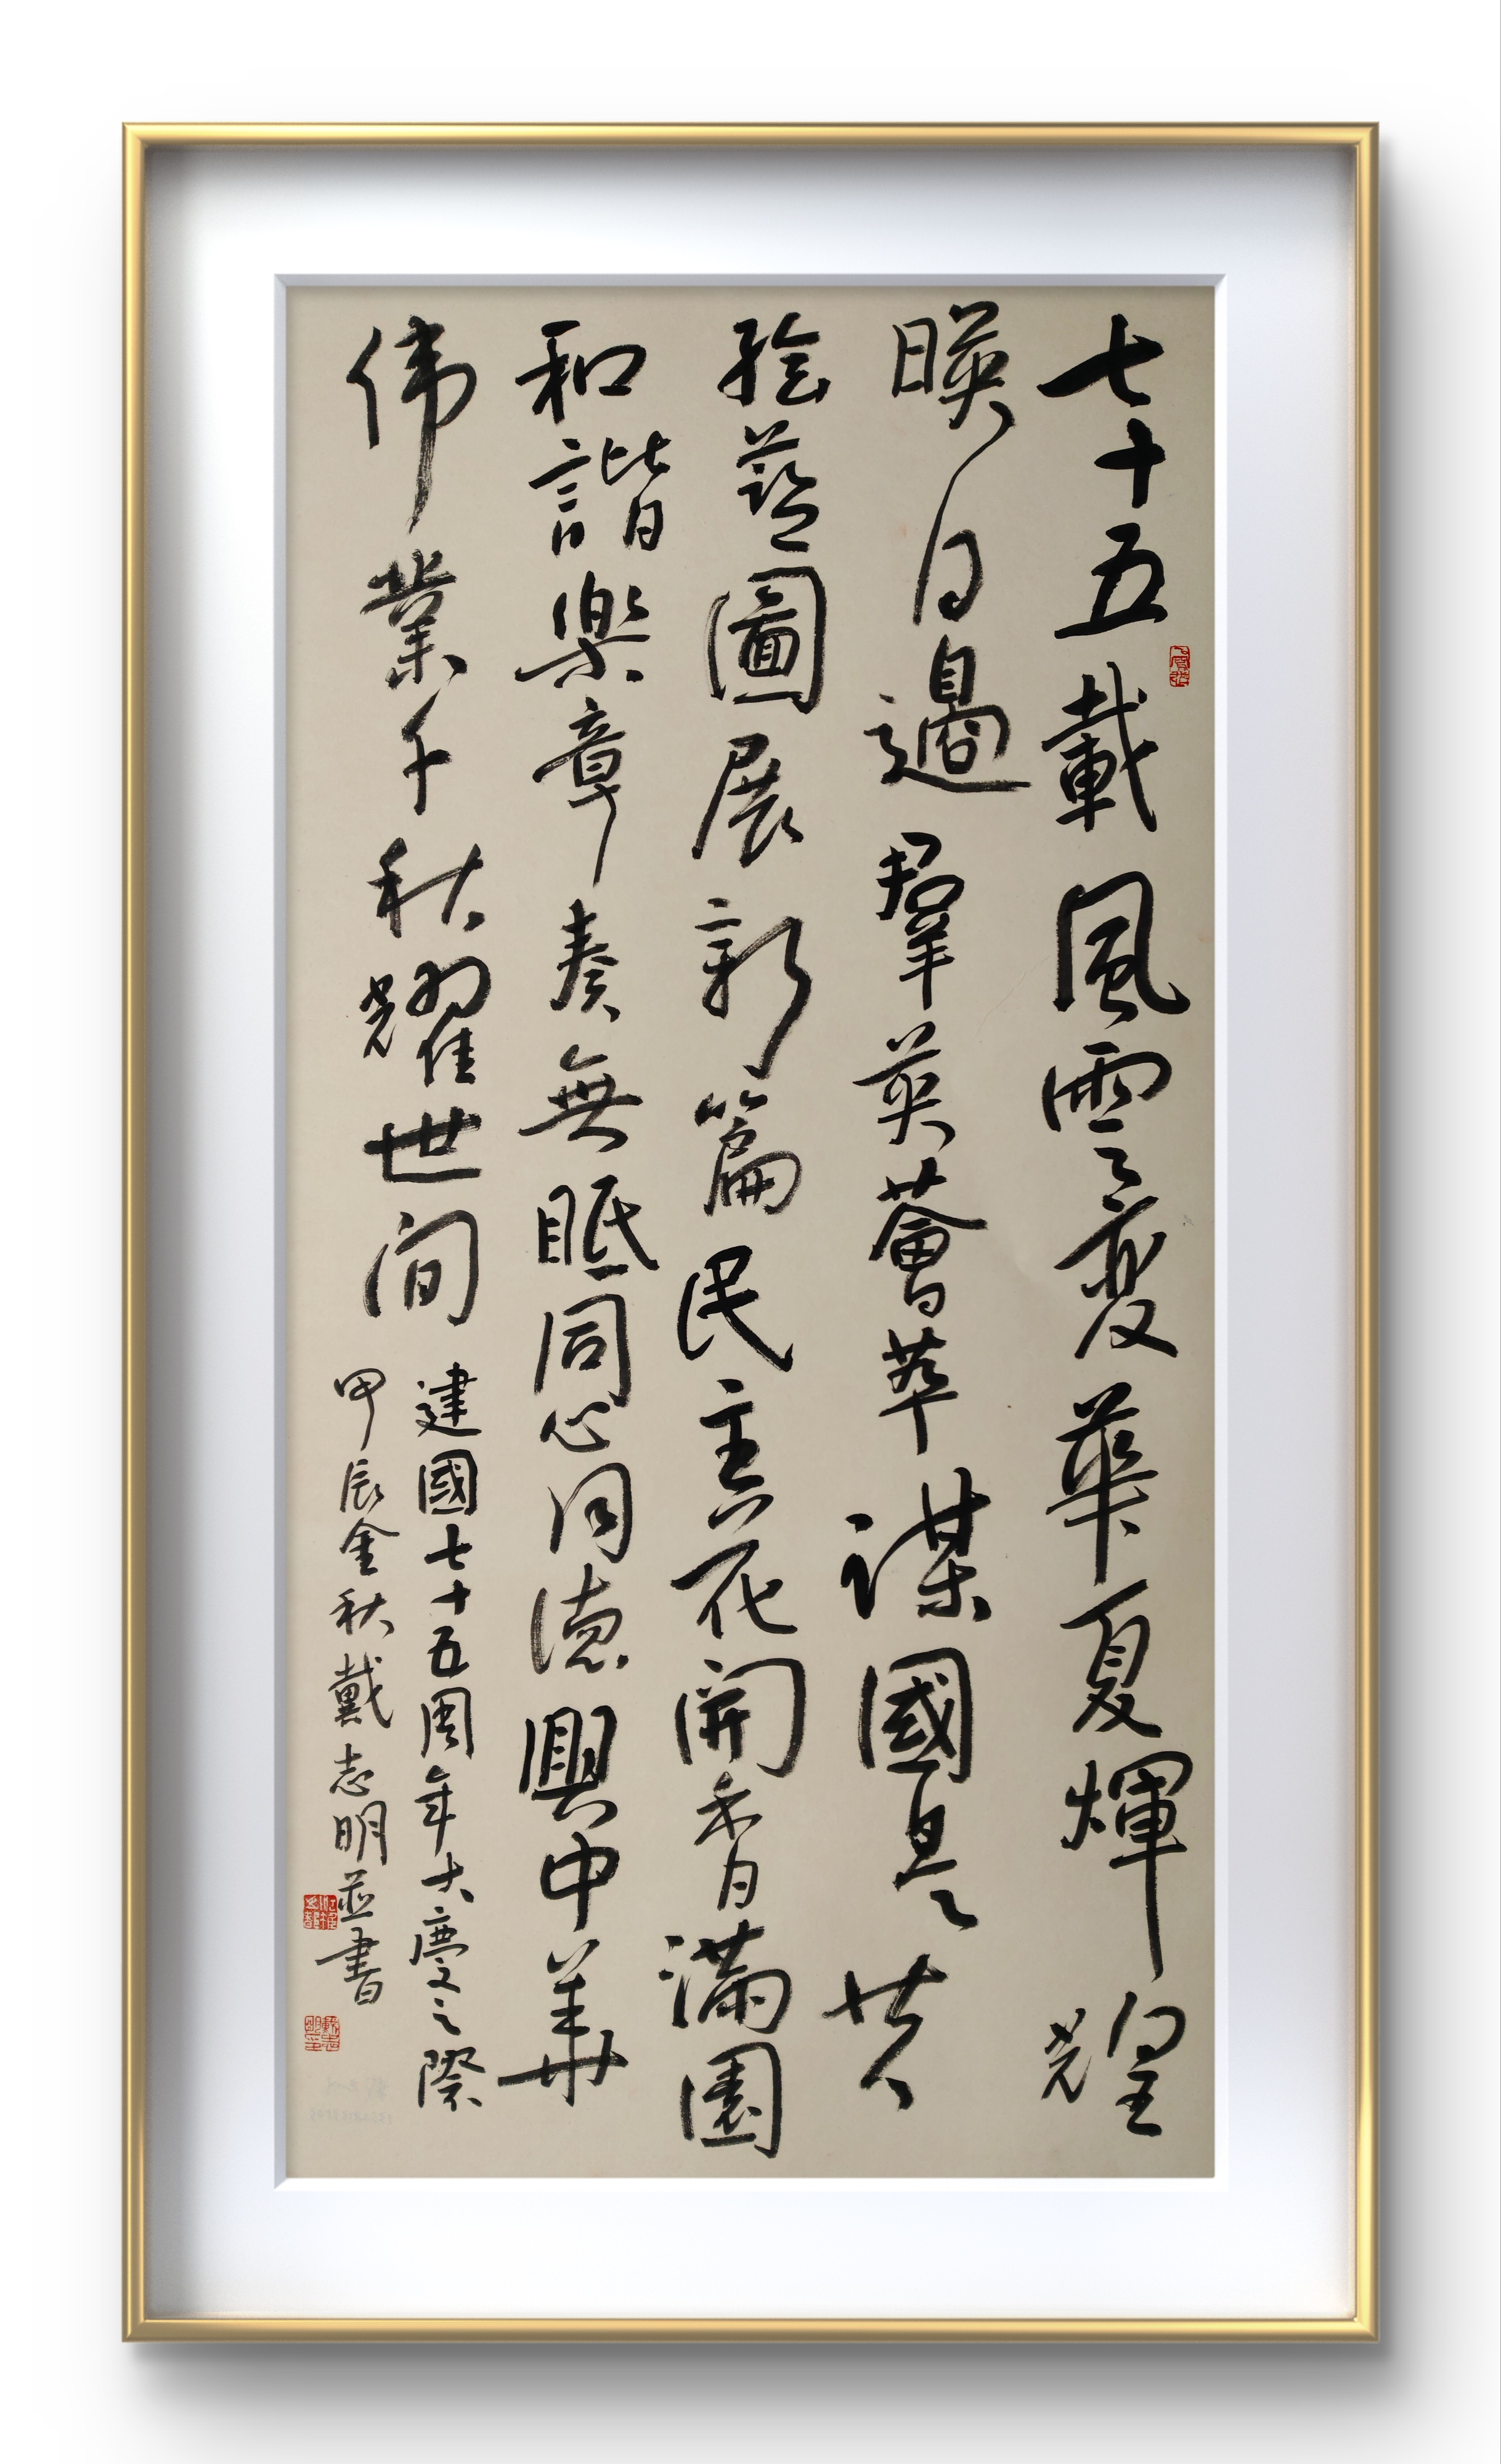 七十五載風雲變華夏輝煌
暎日邊羣英薈萃謀國是共
绘藍圖展新篇民主花開香滿園
和諧樂章奏無眠同心同德興中華
伟業千秋耀世间
建國七十五周年大慶之際
甲辰金秋戴志明並書